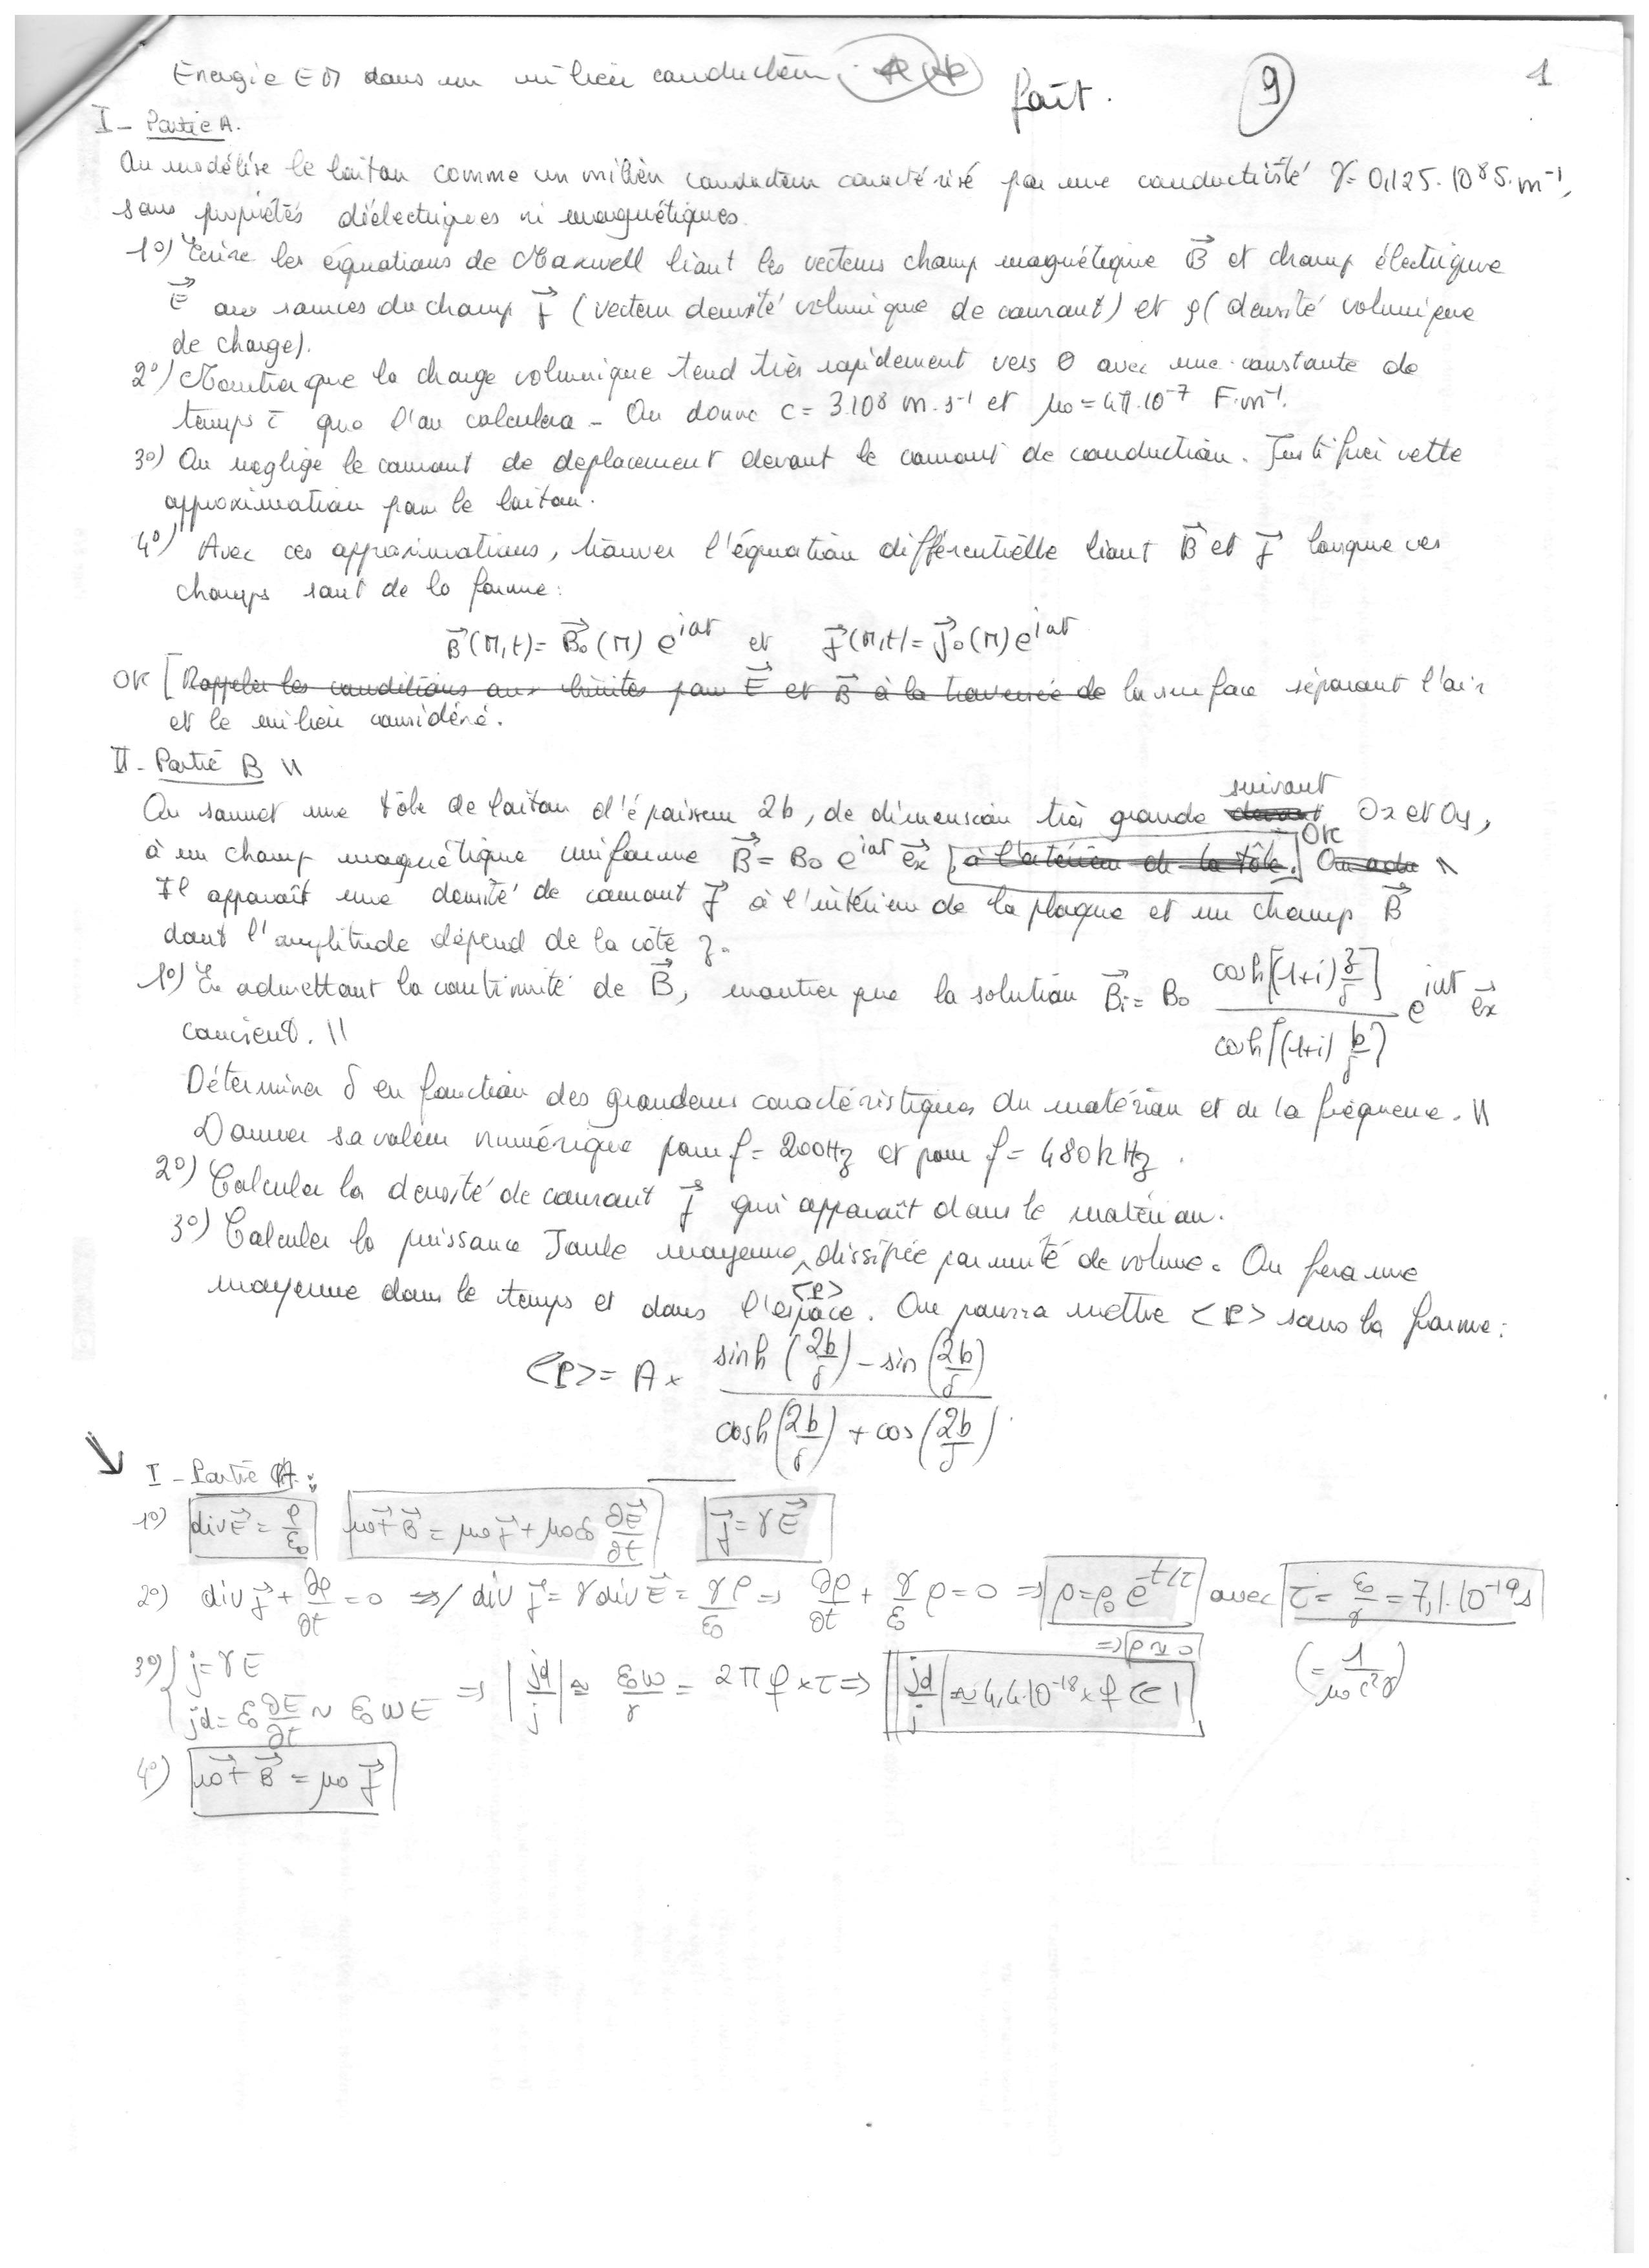 Energie EM dans un milieu conducteur.
fait.
9
1
I - Partie A.
On modélise le laiton comme un milieu conducteur caractérisé par une conductivité γ = 0,125.10⁸ S.m⁻¹,
sans propriétés diélectriques ni magnétiques.
1°) Ecrire les équations de Maxwell liant les vecteurs champ magnétique B⃗ et champ électrique
E⃗ aux sources du champ j⃗ (vecteur densité volumique de courant) et ρ (densité volumique
de charge).
2°) Montrer que la charge volumique tend très rapidement vers 0 avec une constante de
temps τ que l'on calculera - On donne c = 3.10⁸ m.s⁻¹ et μ₀ = 4π.10⁻⁷ F.m⁻¹.
3°) On néglige le courant de déplacement devant le courant de conduction. Justifier cette
approximation pour le laiton.
4°) Avec ces approximations, trouver l'équation différentielle liant B⃗ et j⃗ lorsque ces
champs sont de la forme:
B⃗(M,t) = B⃗₀(M) e^{iωt} et j⃗(M,t) = j⃗₀(M) e^{iωt}
OK [Rappeler les conditions aux limites pour E⃗ et B⃗ à la traversée de la surface séparant l'air
et le milieu considéré.
II - Partie B \\
On soumet une tôle de laiton d'épaisseur 2b, de dimension très grande devant suivant Ox et Oy,
à un champ magnétique uniforme B⃗ = B₀ e^{iωt} e⃗x [à l'extérieur de la tôle.] OK \\
Il apparaît une densité de courant j⃗ à l'intérieur de la plaque et un champ B⃗
dont l'amplitude dépend de la côte z.
1°) En admettant la continuité de B⃗, montrer que la solution B⃗i = B₀ cosh[(1+i) z/δ] / cosh[(1+i) b/δ] e^{iωt} e⃗x
convient. \\
Déterminer δ en fonction des grandeurs caractéristiques du matériau et de la fréquence. \\
Donner sa valeur numérique pour f = 200Hz et pour f = 480kHz.
2°) Calculer la densité de courant j⃗ qui apparaît dans le matériau.
3°) Calculer la puissance Joule moyenne <P> dissipée par unité de volume. On fera une
moyenne dans le temps et dans l'espace. On pourra mettre <P> sous la forme:
<P> = A × (sinh(2b/δ) - sin(2b/δ)) / (cosh(2b/δ) + cos(2b/δ)).
I - Partie A:
1°) div E⃗ = ρ/ε₀ rot⃗ B⃗ = μ₀ j⃗ + μ₀ε₀ ∂E⃗/∂t j⃗ = γE⃗
2°) div j⃗ + ∂ρ/∂t = 0 => / div j⃗ = γ div E⃗ = γρ/ε₀ => ∂ρ/∂t + γ/ε₀ ρ = 0 => ρ = ρ₀ e^{-t/τ} avec τ = ε₀/γ = 7,1.10⁻¹⁹ s
=> ρ ≈ 0
(= 1/(μ₀c²γ))
3°) { j = γE
jd = ε₀ ∂E/∂t ~ ε₀ωE => |jd/j| ≈ ε₀ω/γ = 2πf × τ => |jd/j| ≈ 4,4.10⁻¹⁸ × f << 1
4°) rot⃗ B⃗ = μ₀ j⃗